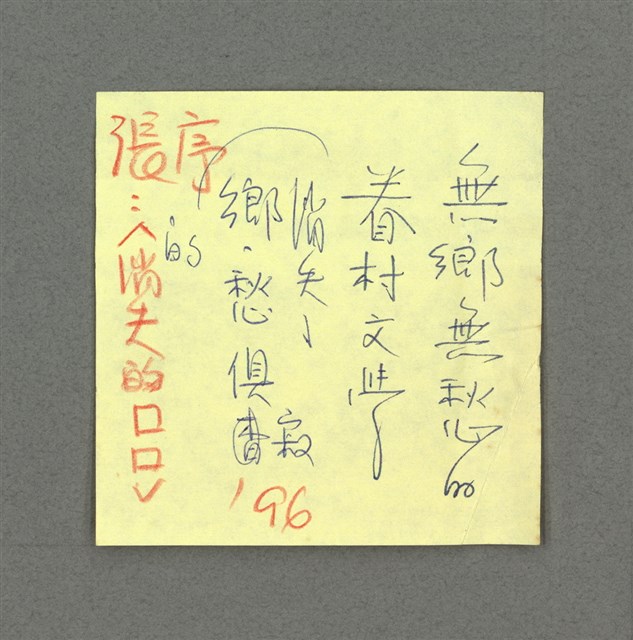 無鄉無愁的
眷村文學
消失了
鄉、愁俱寂
的
序
張：〈消失的口口〉
'96